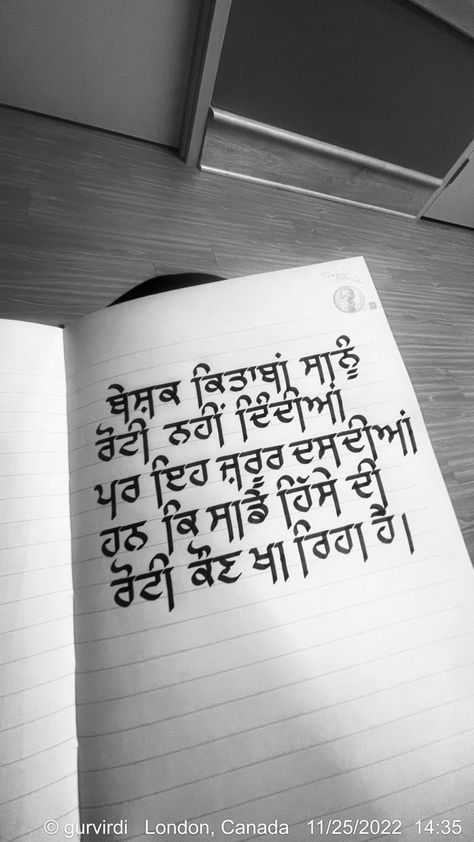 ਬੇਸ਼ਕ ਕਿਤਾਬਾਂ ਸਾਨੂੰ
ਰੋਟੀ ਨਹੀਂ ਦਿੰਦੀਆਂ
ਪਰ ਇਹ ਜ਼ਰੂਰ ਦਸਦੀਆਂ
ਹਨ ਕਿ ਸਾਡੇ ਹਿੱਸੇ ਦੀ
ਰੋਟੀ ਕੌਣ ਖਾ ਰਿਹਾ ਹੈ।
© gurvirdi London, Canada 11/25/2022 14:35